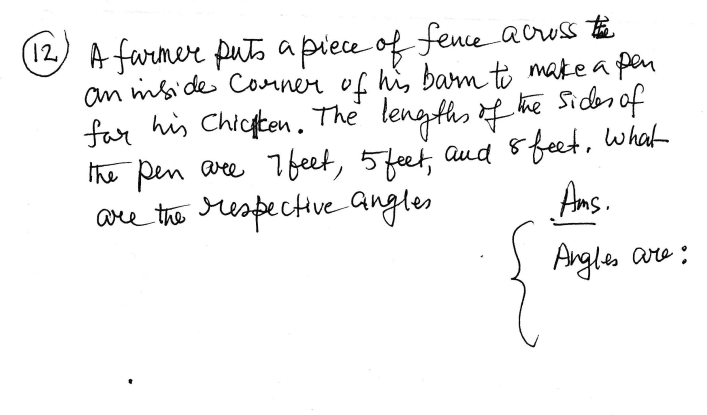 (12) A farmer puts a piece of fence across
an inside corner of his barn to make a pen
for his Chicken. The lengths of the sides of
the pen are 7 feet, 5 feet, and 8 feet. What
are the respective angles
Ans.
Angles are: